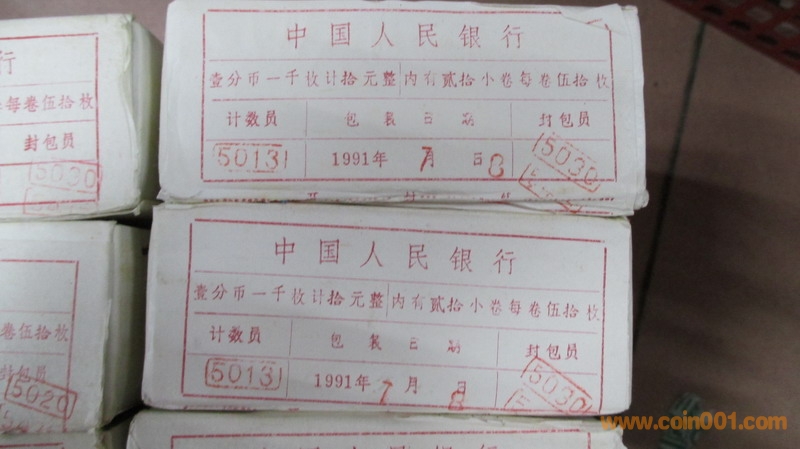 中国人民银行
壹分币一千枚计拾元整 内有贰拾小卷每卷伍拾枚
计数员 包装日期 封包员
5013 1991年 7月 日8 5030
中国人民银行
壹分币一千枚计拾元整 内有贰拾小卷每卷伍拾枚
计数员 包装日期 封包员
5013 1991年 7月 8日 5030
行
每卷伍拾枚
封包员
5030
卷伍拾枚
封包员
5020
中国人民银行
www.coin001.com